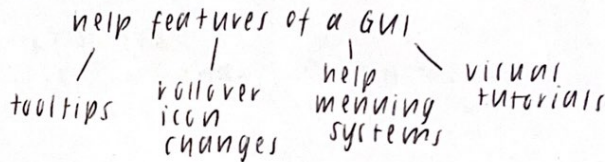 help features of a GUI
tooltips
rollover
icon
changes
help
menning
systems
visual
tutorials